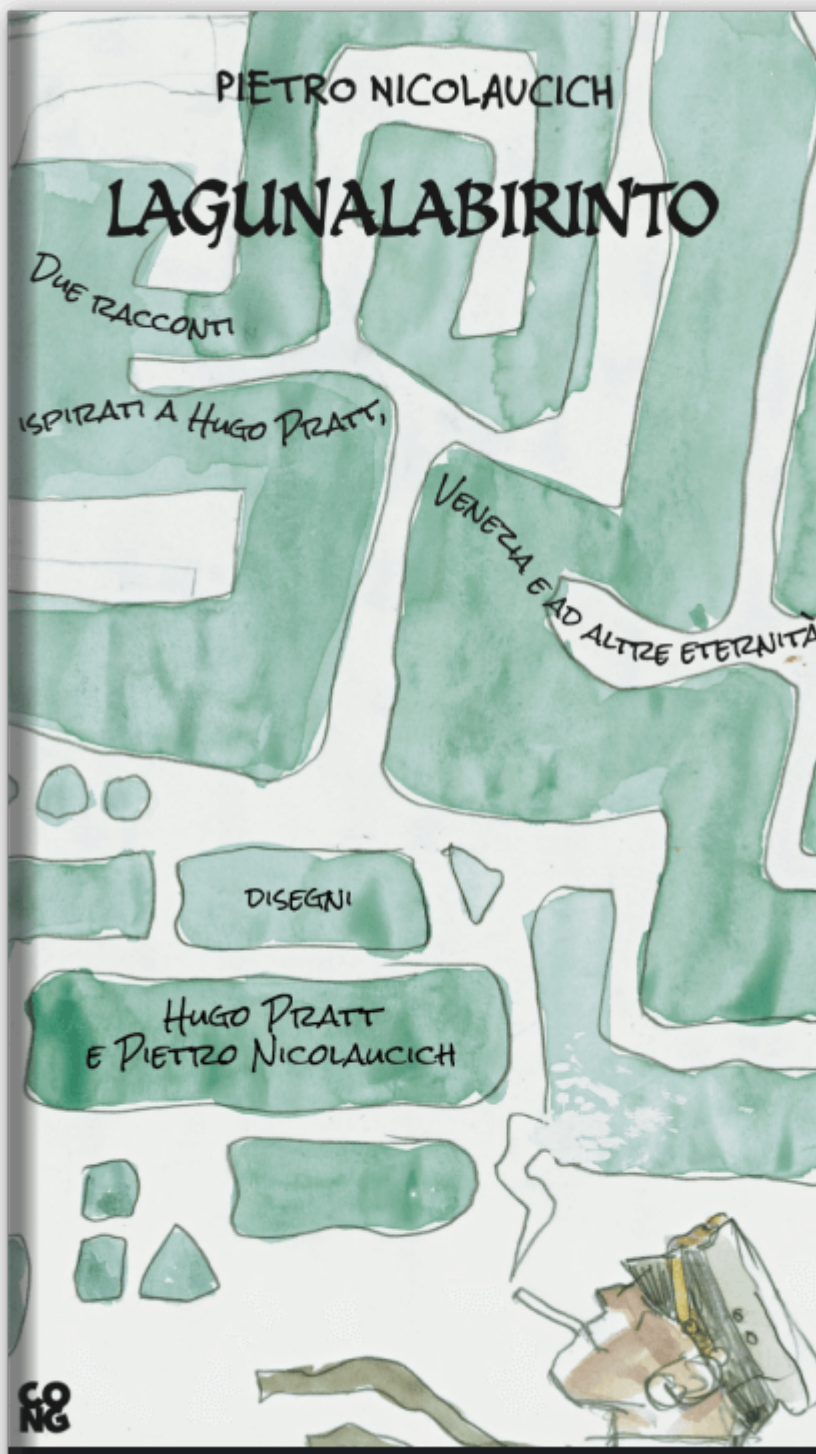 PIETRO NICOLAUCICH
LAGUNALABIRINTO
DUE RACCONTI
ISPIRATI A HUGO PRATT,
VENEZIA E AD ALTRE ETERNITÀ
DISEGNI
HUGO PRATT
E PIETRO NICOLAUCICH
CO
NG